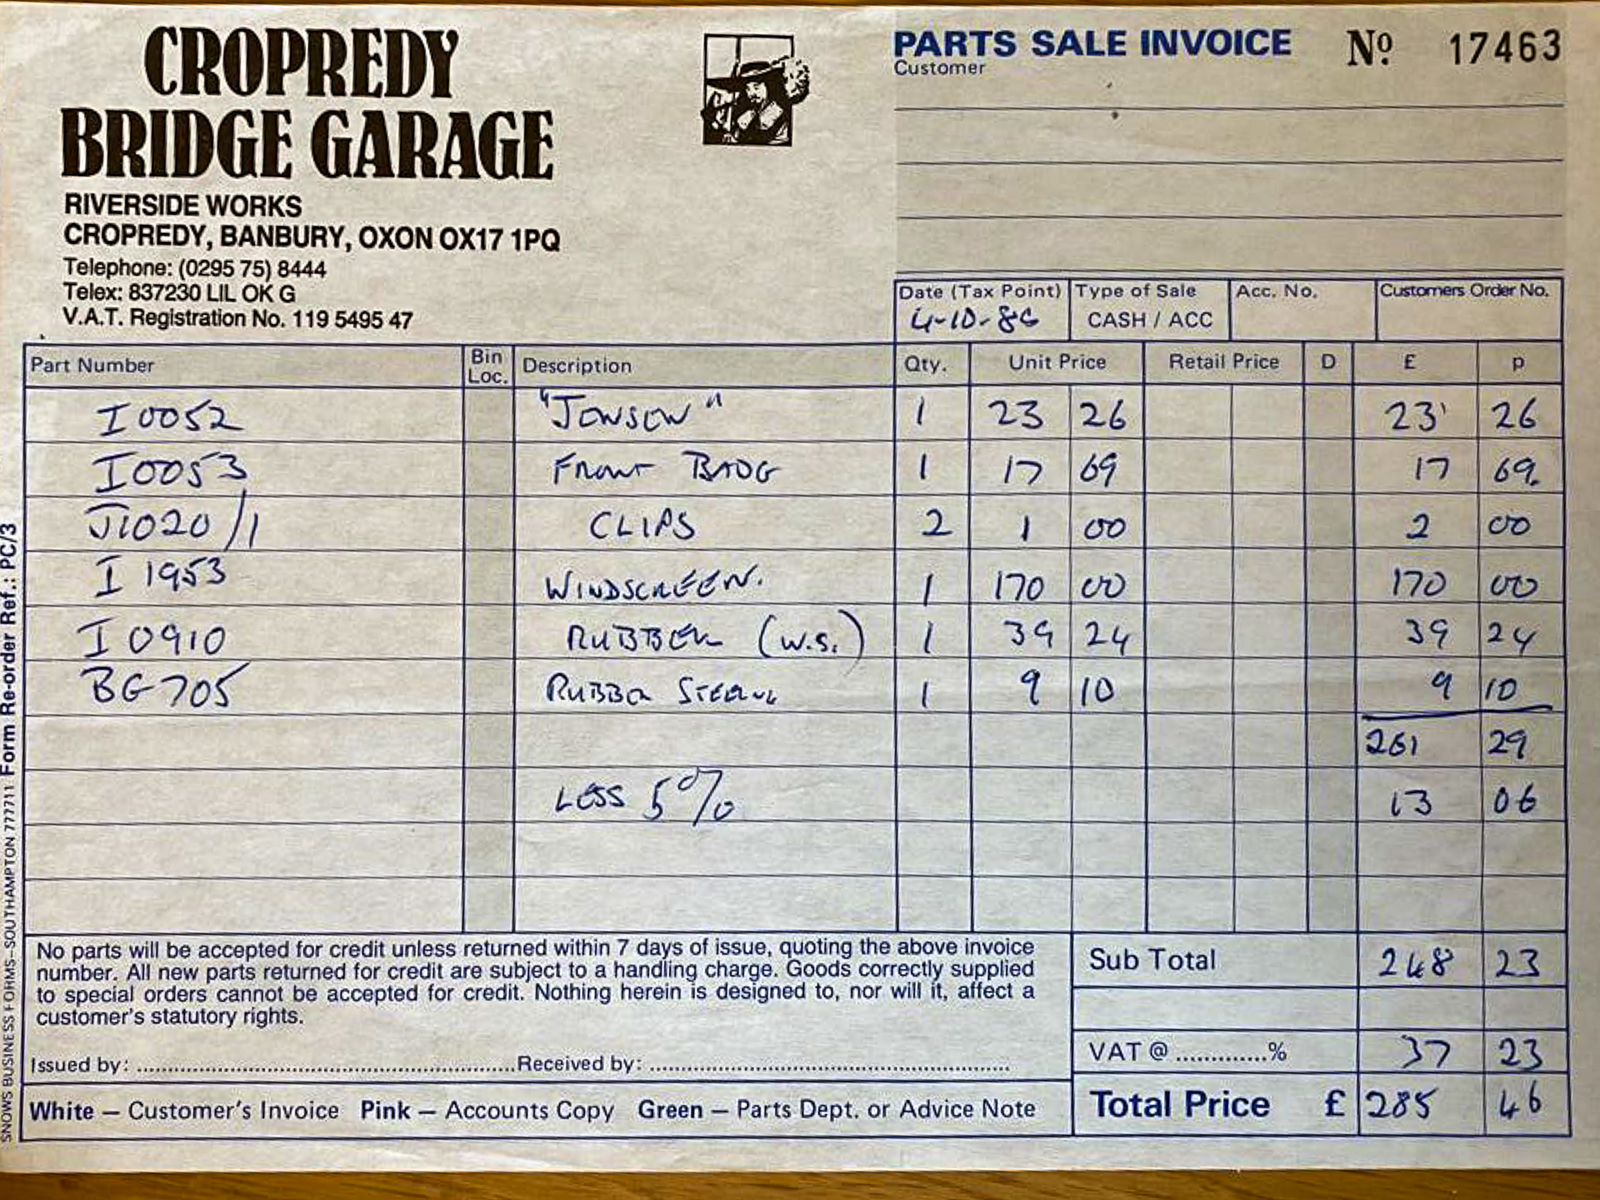 CROPREDY
BRIDGE GARAGE
RIVERSIDE WORKS
CROPREDY, BANBURY, OXON OX17 1PQ
Telephone: (0295 75) 8444
Telex: 837230 LIL OK G
V.A.T. Registration No. 119 5495 47
PARTS SALE INVOICE Nº 17463
Customer
Date (Tax Point) Type of Sale Acc. No. Customers Order No.
4-10-86 CASH / ACC
Part Number Bin Loc. Description Qty. Unit Price Retail Price D £ p
I0052 "JENSEN" 1 23 26 23 26
I0053 FRONT BADG 1 17 69 17 69.
J1020/1 CLIPS 2 1 00 2 00
I 1953 WINDSCREEN. 1 170 00 170 00
I 0910 RUBBER (W.S.) 1 39 24 39 24
BG 705 RUBBER 1 9 10 9 10
261 29
LESS 5% 13 06
No parts will be accepted for credit unless returned within 7 days of issue, quoting the above invoice
number. All new parts returned for credit are subject to a handling charge. Goods correctly supplied
to special orders cannot be accepted for credit. Nothing herein is designed to, nor will it, affect a
customer's statutory rights.
Sub Total 248 23
Issued by: ........ Received by: ........
VAT @ .............% 37 23
White — Customer's Invoice Pink — Accounts Copy Green — Parts Dept. or Advice Note
Total Price £ 285 46
SNOWS BUSINESS FORMS—SOUTHAMPTON 777711 Form Re-order Ref.: PC/3